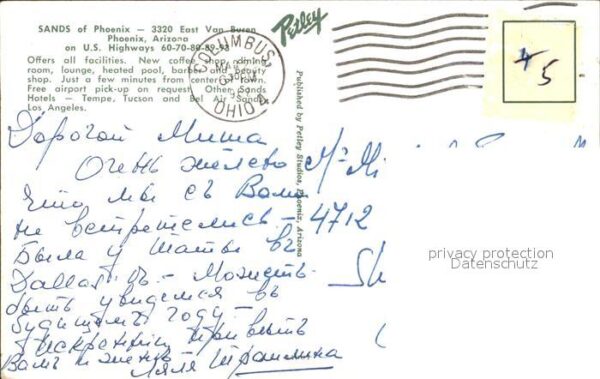 SANDS of Phoenix — 3320 East Van Buren
Phoenix, Arizona
on U.S. Highways 60-70-80-89-93
Offers all facilities. New coffee shop, dining
room, lounge, heated pool, barber and beauty
shop. Just a few minutes from center of town.
Free airport pick-up on request. Other Sands
Hotels — Tempe, Tucson and Bel Air Sands,
Los Angeles.
Petley
Published by Petley Studios, Phoenix, Arizona
COLUMBUS
MAR
OHIO 2
4
5
Дорогой Миша
Очень жалею
что мы съ Вами
не встретелись –
Была у Таты въ
Dallas'ѣ. – Можетъ
быть увидемся въ
будущемъ году –
Искренній привѣтъ
Вамъ и жене
Ляля
M
4712
Sh
privacy protection
Datenschutz